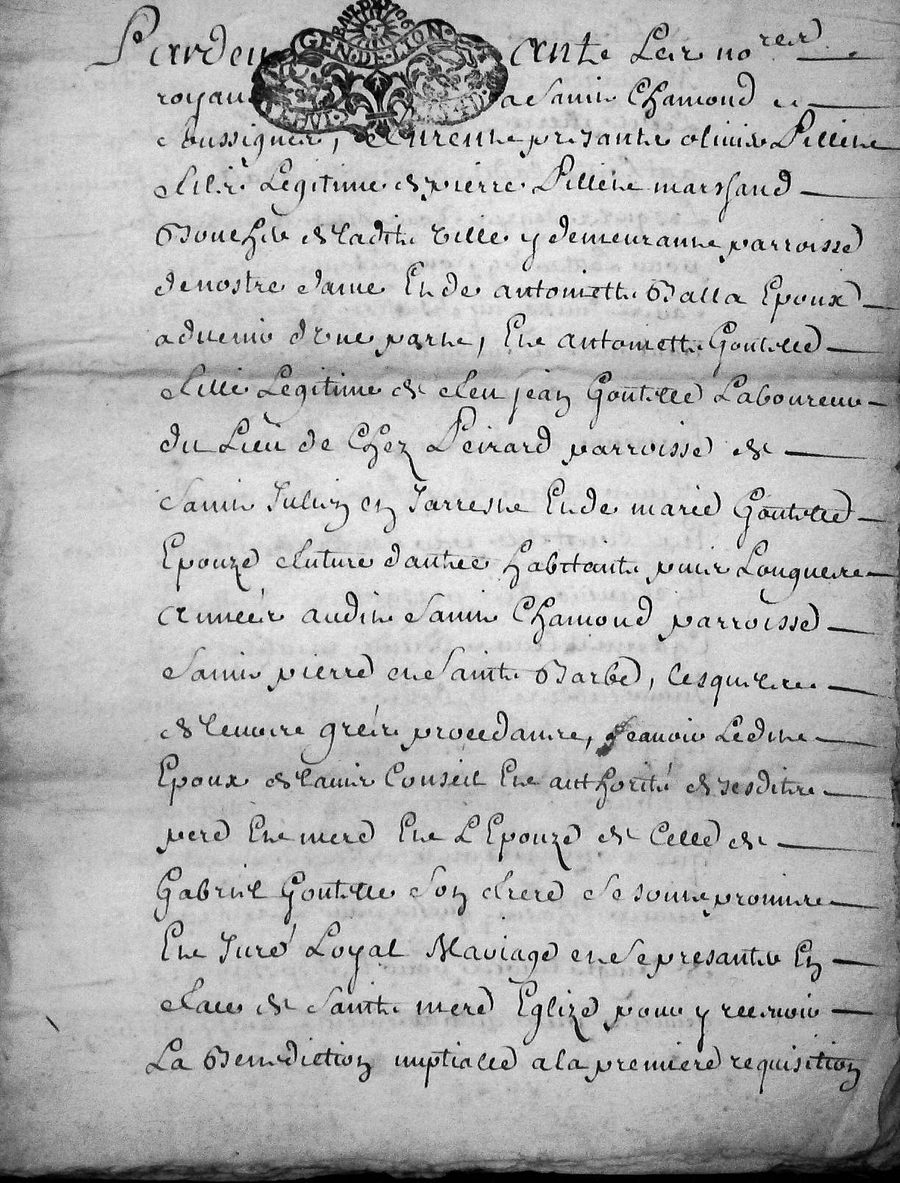 GEN DE LION
Pardeu ante Les no.res
royau a Saint Chamond
soussignes, furent presants olivier Pilliere
fils Legitime de pierre Pilliere marchand
Boucher de ladite ville y demeurant parroisse
de nostre dame Et de antoinette Balla Epoux
advenir d'une part, Et antoinette Goutelle
fille Legitime de feu jean Goutelle Laboureur
du Lieu de Chez Peirard parroisse de
Saint Julien en Jarrest Et de marie Goutelle
Epouze future d'autre habitant puis Longues
années audit Saint Chamond parroisse
Saint pierre et Sainte Barbe, lesquels
de leurs grés procedants, scavoir Ledit
Epoux de l'avis Conseil Et authorité de sesdits
pere Et mere Et L'Epouze de Celle de
Gabriel Goutelle son frere se sont promis
Et Juré Loyal Mariage et se presanter En
face de Sainte mere Eglize pour y recevoir
La Benediction nuptialle a la premiere requisition